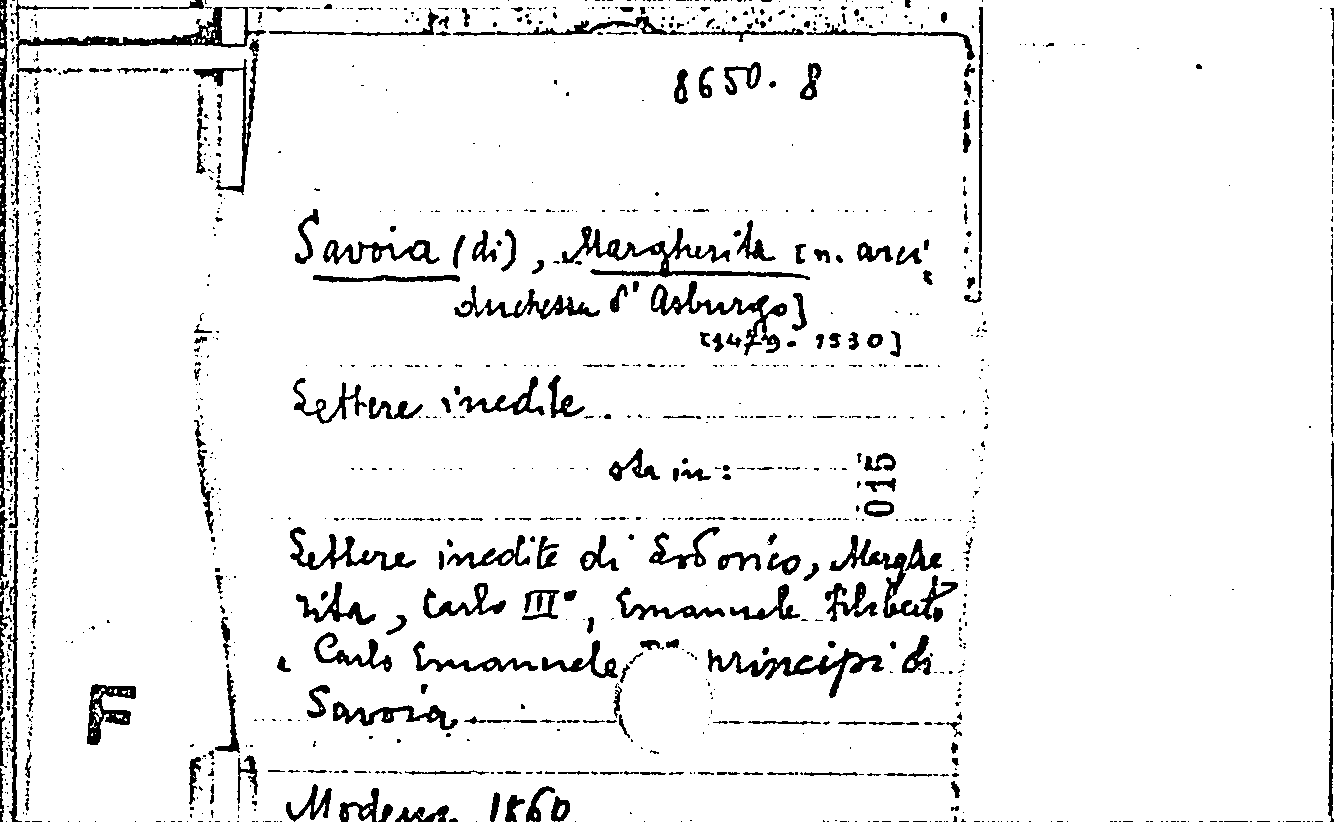 8650. 8
Savoia (di), Margherita [n. arci,
duchessa d' Asburgo]
[1479-1530]
Lettere inedite.
sta in:
015
Lettere inedite di Lodovico, Marghe
rita, Carlo III°, Emanuele Filiberto
e Carlo Emanuele principi di
Savoia.
F
Modena 1860